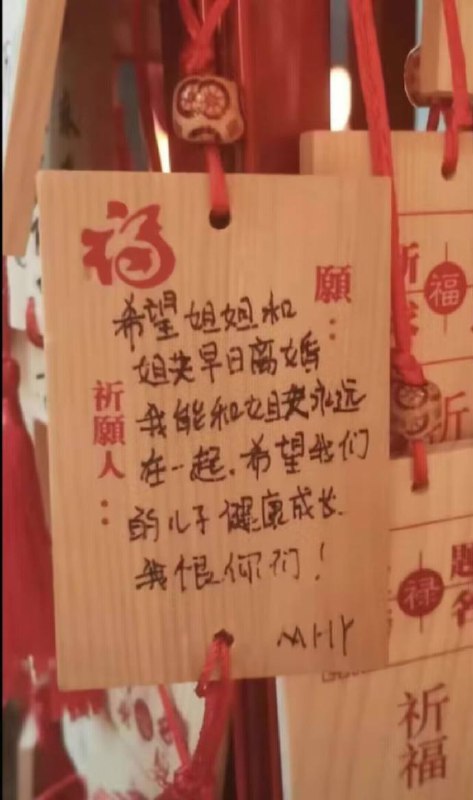 福
願：
希望姐姐和
姐夫早日离婚
我能和姐夫永远
在一起.希望我们
的儿子健康成长.
我恨你们！
MHY
祈願人：
福
祈
禄
題名
祈福